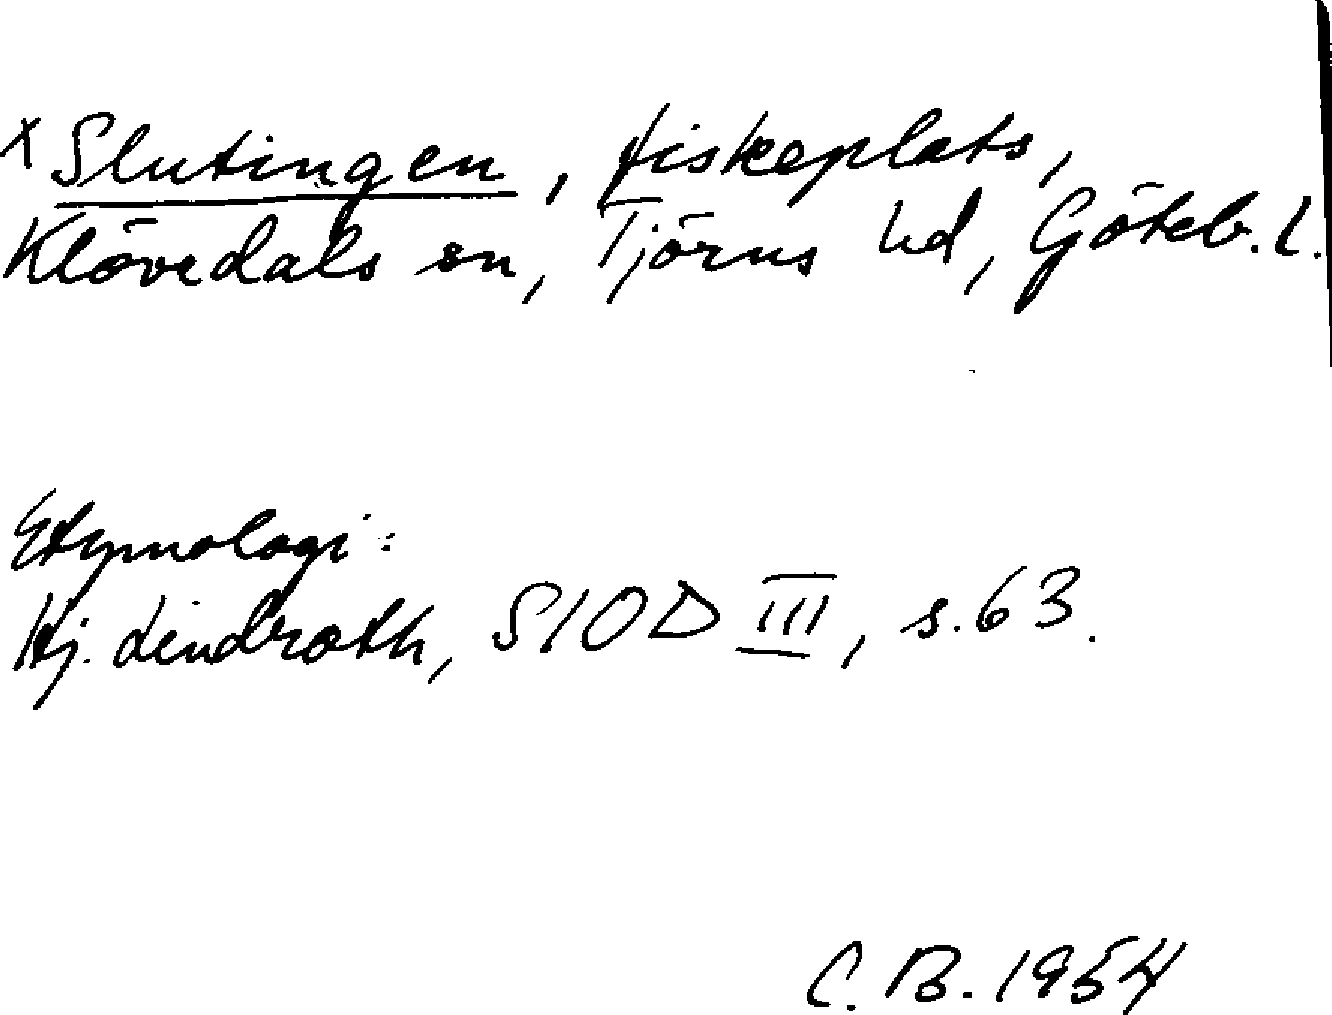 x Slutingen, fiskeplats,
Klövedals sn, Tjörns hd, Göteb. l.
Etymologi:
Hj. Lindroth, SIOD III, s. 63.
C. B. 1954